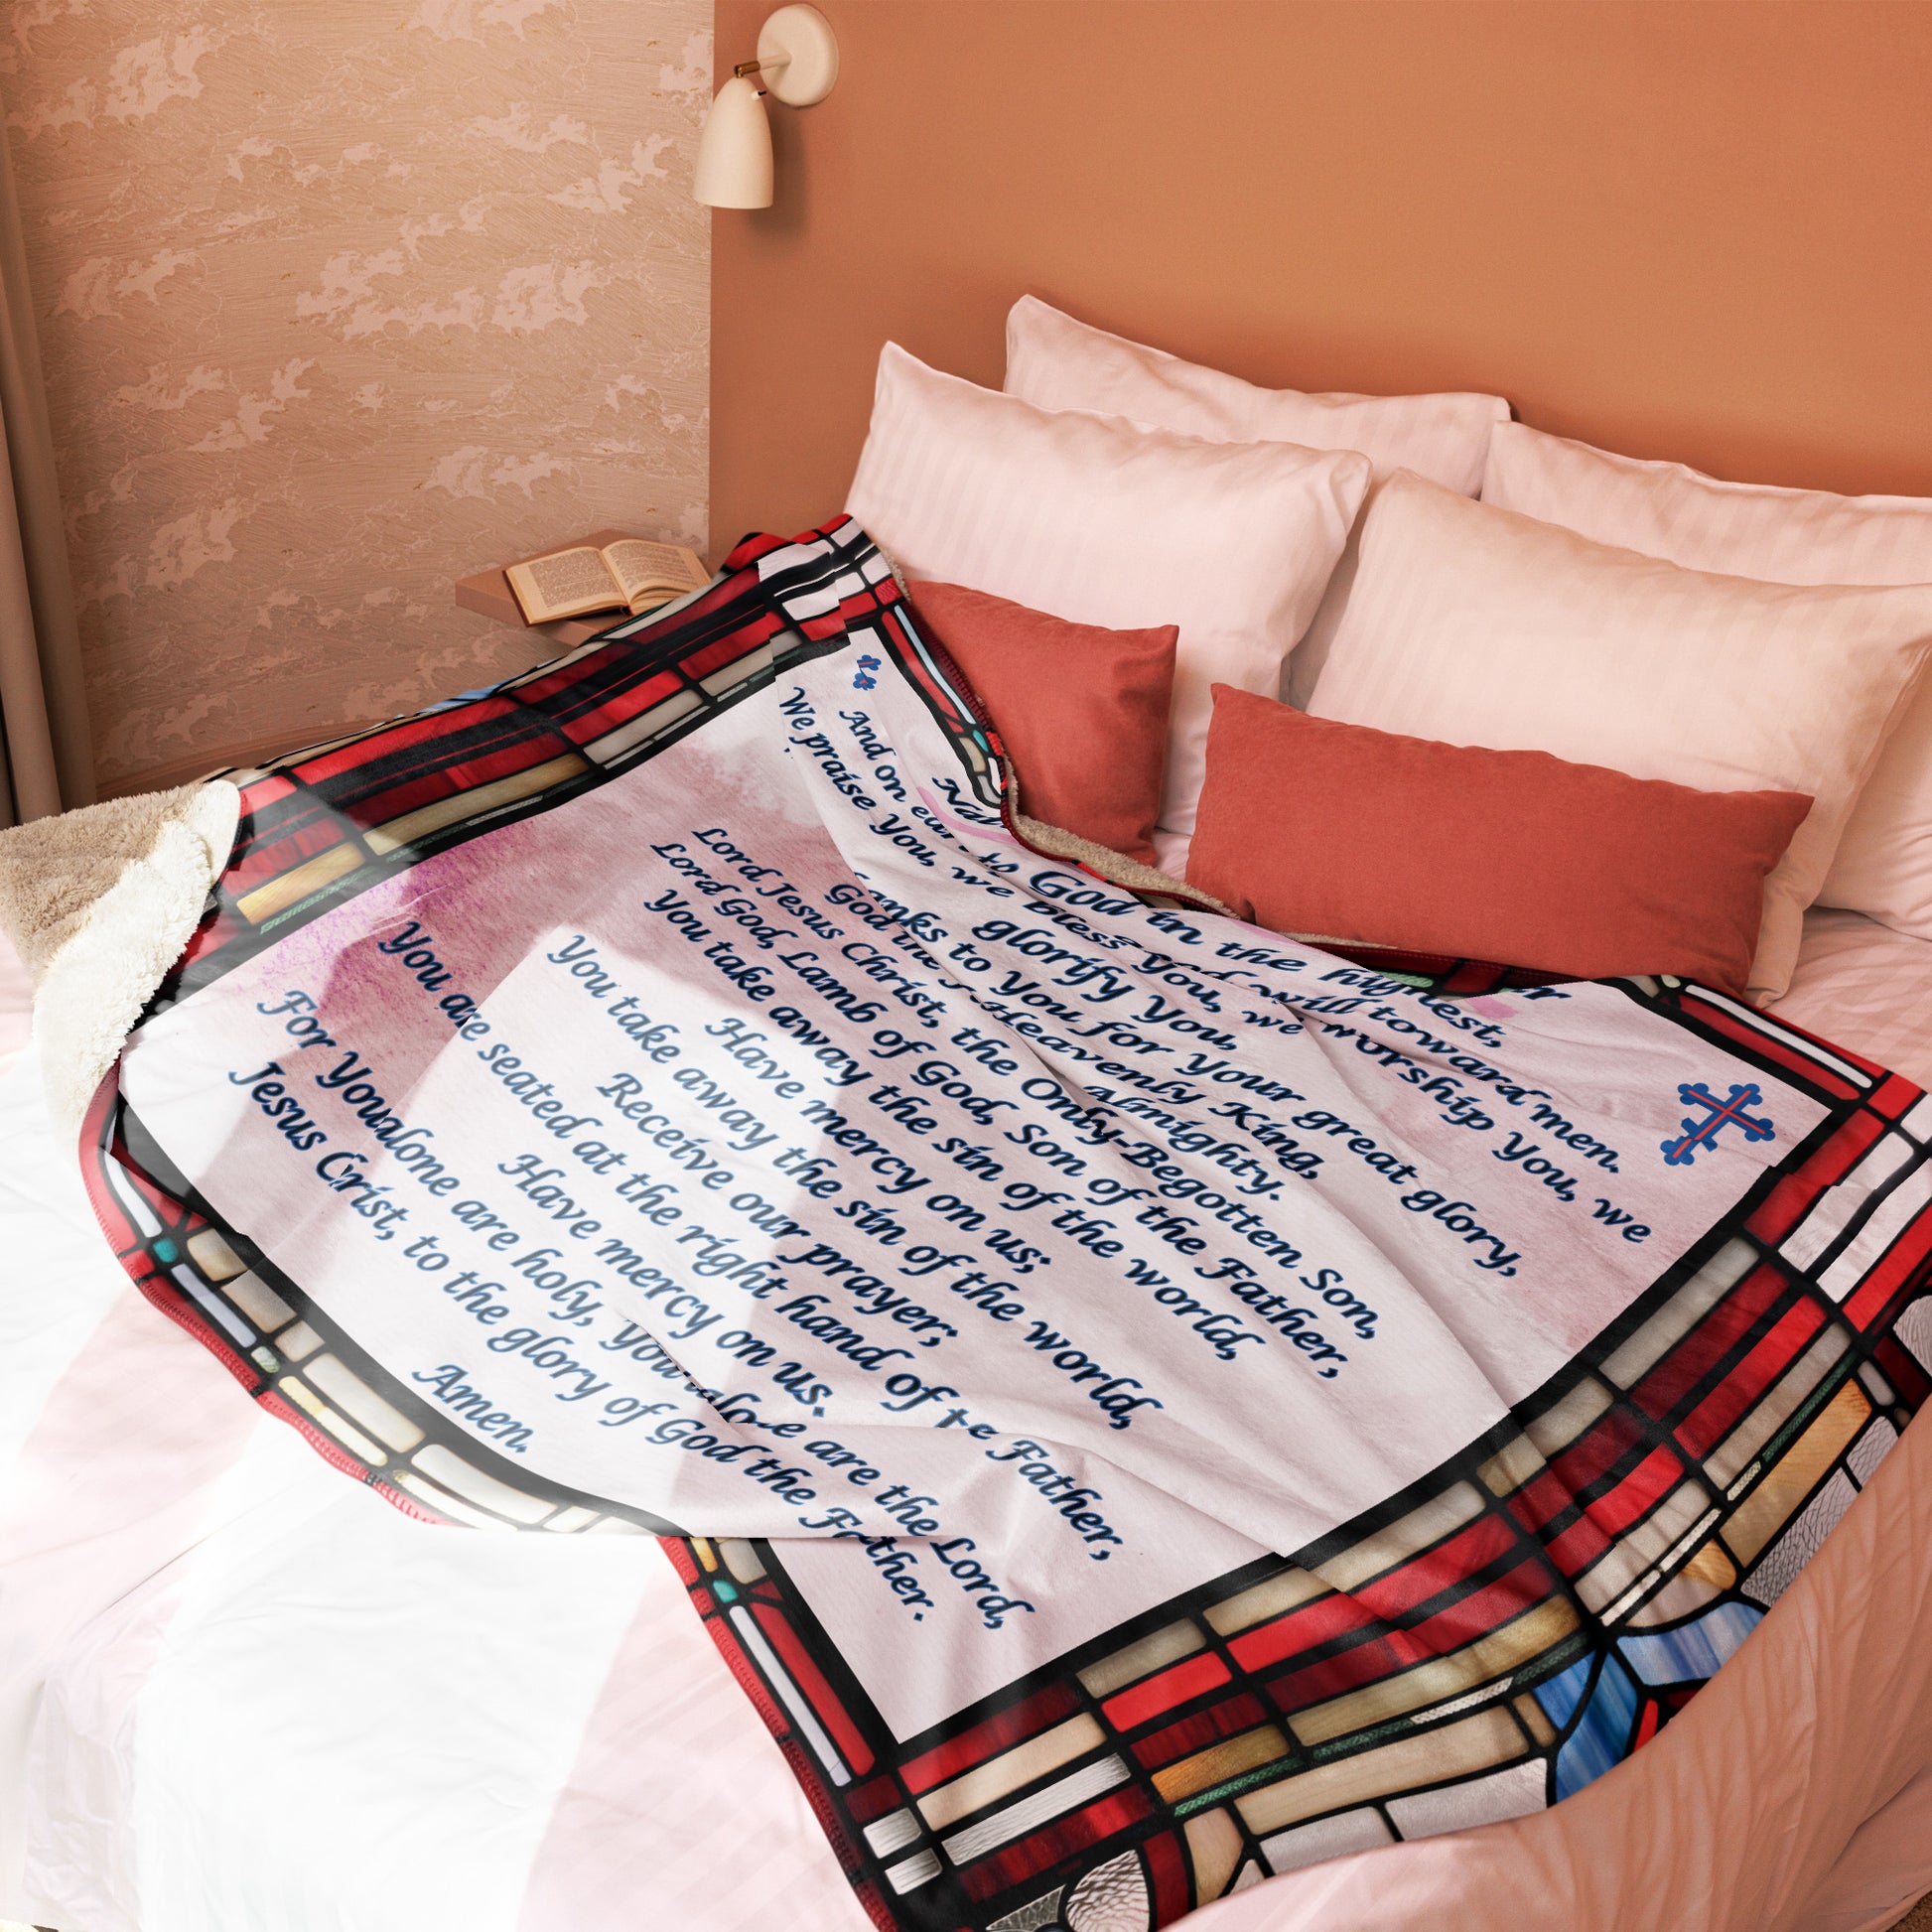 God in the highest,
And on earth will toward men.
We praise You, we bless You, we worship You, we
glorify You,
thanks to You for Your great glory,
Heavenly King,
God the Almighty.
Lord Jesus Christ, the Only-Begotten Son,
Lord God, Lamb of God, Son of the Father,
You take away the sin of the world,
Have mercy on us;
You take away the sin of the world,
Receive our prayer;
You are seated at the right hand of the Father,
Have mercy on us.
For Youalone are holy, You alone are the Lord,
Jesus Crist, to the glory of God the Father.
Amen.